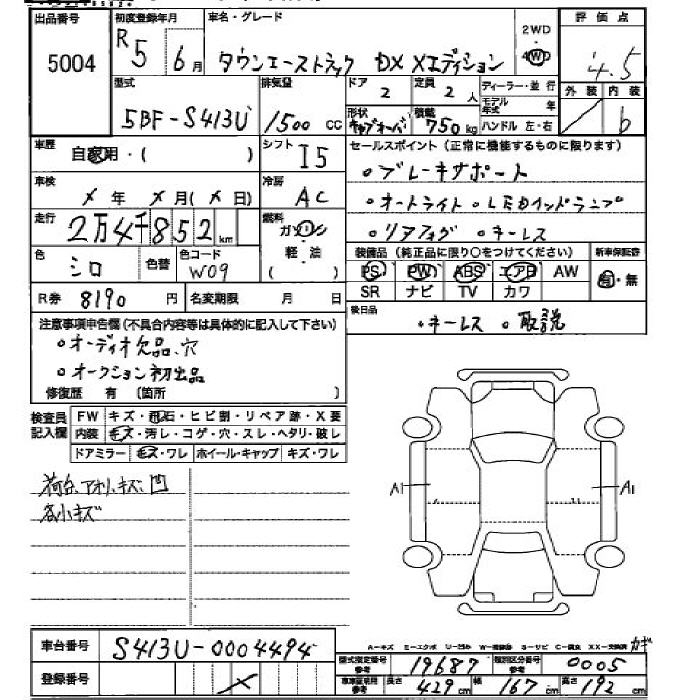 出品番号 初度登録年月 車名・グレード 2WD 評価点
5004 R5 6月 タウンエーストラック DX Xエディション 4WD 4.5
型式 排気量 ドア 定員 ディーラー・並行 外装 内装
5BF-S413U 1500cc 2 2人 モデル年式 年 b
形状 積載 ハンドル 左・右
キャブオーバ 750kg
車歴 自家用・( ) シフト I5 セールスポイント(正常に機能するものに限ります)
車検 ×年 ×月(×日) 冷房 AC ・ブレーキサポート
・オートライト ・LEDヘッドランプ
走行 2万4千852km 燃料 ガソリン 軽油 ( ) ・リアフォグ ・キーレス
色 シロ 色替 色コード W09 装備品(純正品に限り○をつけてください) 新車保証書
PS PW ABS エアB AW 有・無
R券 8190円 名変期限 月 日 SR ナビ TV カワ
注意事項申告欄(不具合内容等は具体的に記入して下さい) 後日品 ・キーレス ・取説
・オーディオ欠品、穴
・オークション初出品
修復歴 有 〔箇所 〕
検査員記入欄 FW キズ・飛石・ヒビ割・リペア跡・X要
内装 キズ・汚レ・コゲ・穴・スレ・ヘタリ・破レ
ドアミラー キズ・ワレ ホイール・キャップ キズ・ワレ
荷台、アオリ、キズ、凹
各小キズ
A1 A1
車台番号 S413U-0004494
A-キズ E-エクボ U-凹み S-サビ XX-交換済 カギ
型式指定番号 参考 19687 類別区分番号 参考 0005
登録番号 × 長さ 429cm 幅 167cm 高さ 192cm